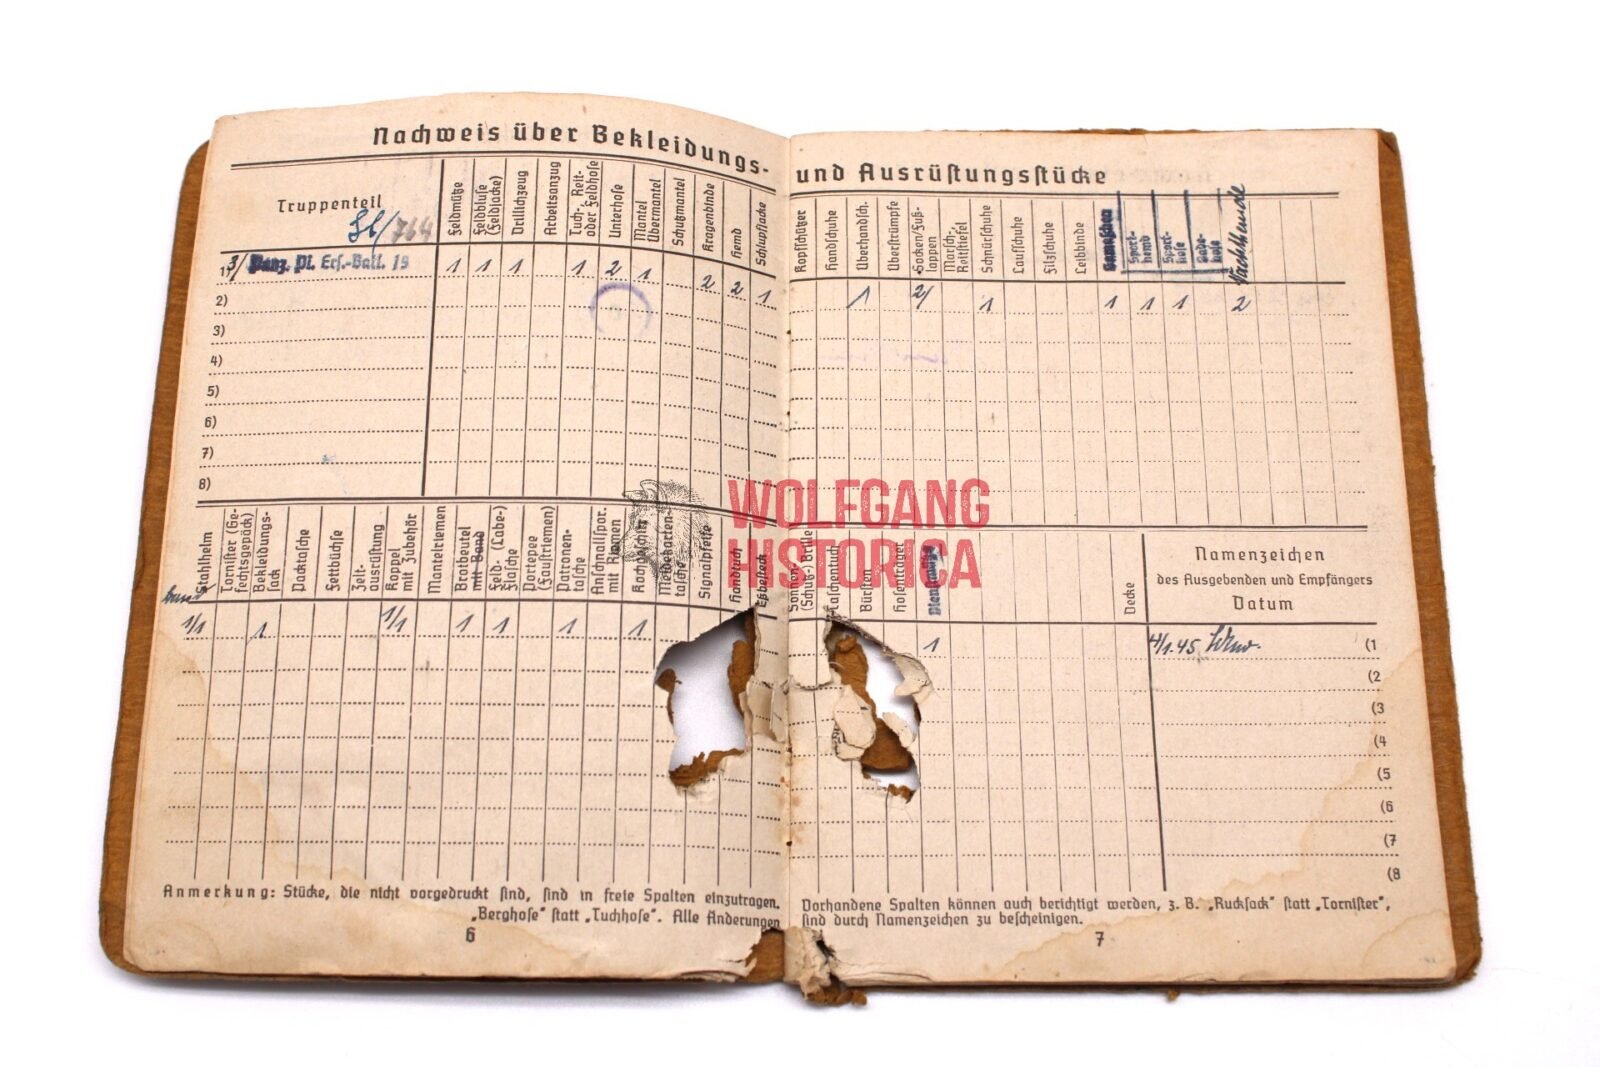 Nachweis über Bekleidungs-
und Ausrüstungsstücke
Truppenteil
Feldmütze
Feldbluse
(Feldjacke)
Drillichzeug
Arbeitsanzug
Tuch-, Reit-
oder Feldhose
Unterhose
Mantel
Übermantel
Schutzmantel
Kragenbinde
Hemd
Schlupfjacke
Kopfschützer
Handschuhe
Überhandsch.
Überstrümpfe
Socken/Fuß-
lappen
Marsch-,
Reitstiefel
Schnürschuhe
Laufschuhe
Filzschuhe
Leibbinde
Gamaschen
Sport-
hemd
Sport-
hose
Bade-
hose
Nachthemde
1) 3/ Panz. Pi. Ers.-Batl. 19 1 1 1 1 2 1 2 2 1 1 2/ 1 1 1 1 2
2)
3)
4)
5)
6)
7)
8)
Stahlhelm
Tornister (Ge-
fechtsgepäck)
Bekleidungs-
sack
Packtasche
Fettbüchse
Zelt-
ausrüstung
Koppel
mit Zubehör
Mantelriemen
Brotbeutel
mit Band
Feld- (Labe-)
Flasche
Portepee
(Faustriemen)
Patronen-
tasche
Anschnallspor.
mit Riemen
Kochgeschirr
Meldekarten-
tasche
Signalpfeife
Handtuch
Eßbesteck
Sonnen-
(Schutz-) Brille
Taschentuch
Bürsten
Hosenträger
Decke
Namenzeichen
des Ausgebenden und Empfängers
Datum
1/1 1 1/1 1 1 1 1 1 4/1.45 (1
(2
(3
(4
(5
(6
(7
(8
Anmerkung: Stücke, die nicht vorgedruckt sind, sind in freie Spalten einzutragen.
„Berghose“ statt „Tuchhose“. Alle Änderungen
6
Vorhandene Spalten können auch berichtigt werden, z. B. „Rucksack“ statt „Tornister“,
sind durch Namenzeichen zu bescheinigen.
7
WOLFGANG
HISTORICA